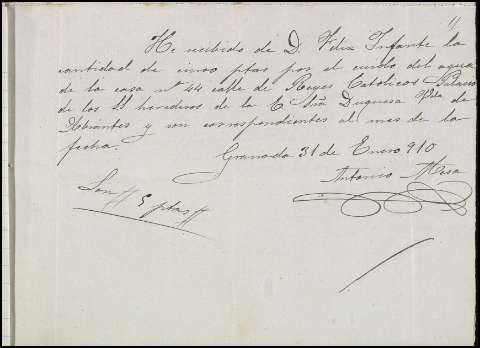 11
He recibido de D. Felix Infante la
cantidad de cinco ptas por el censo del agua
de la casa nº 44 calle de Reyes Catolicos Palacio
de los SS herederos de la E Sña Duquesa Vda de
Abrantes y son correspondientes al mes de la
fecha.
Granada 31 de Enero 910
Antonio Mesa
Son # 5 ptas #